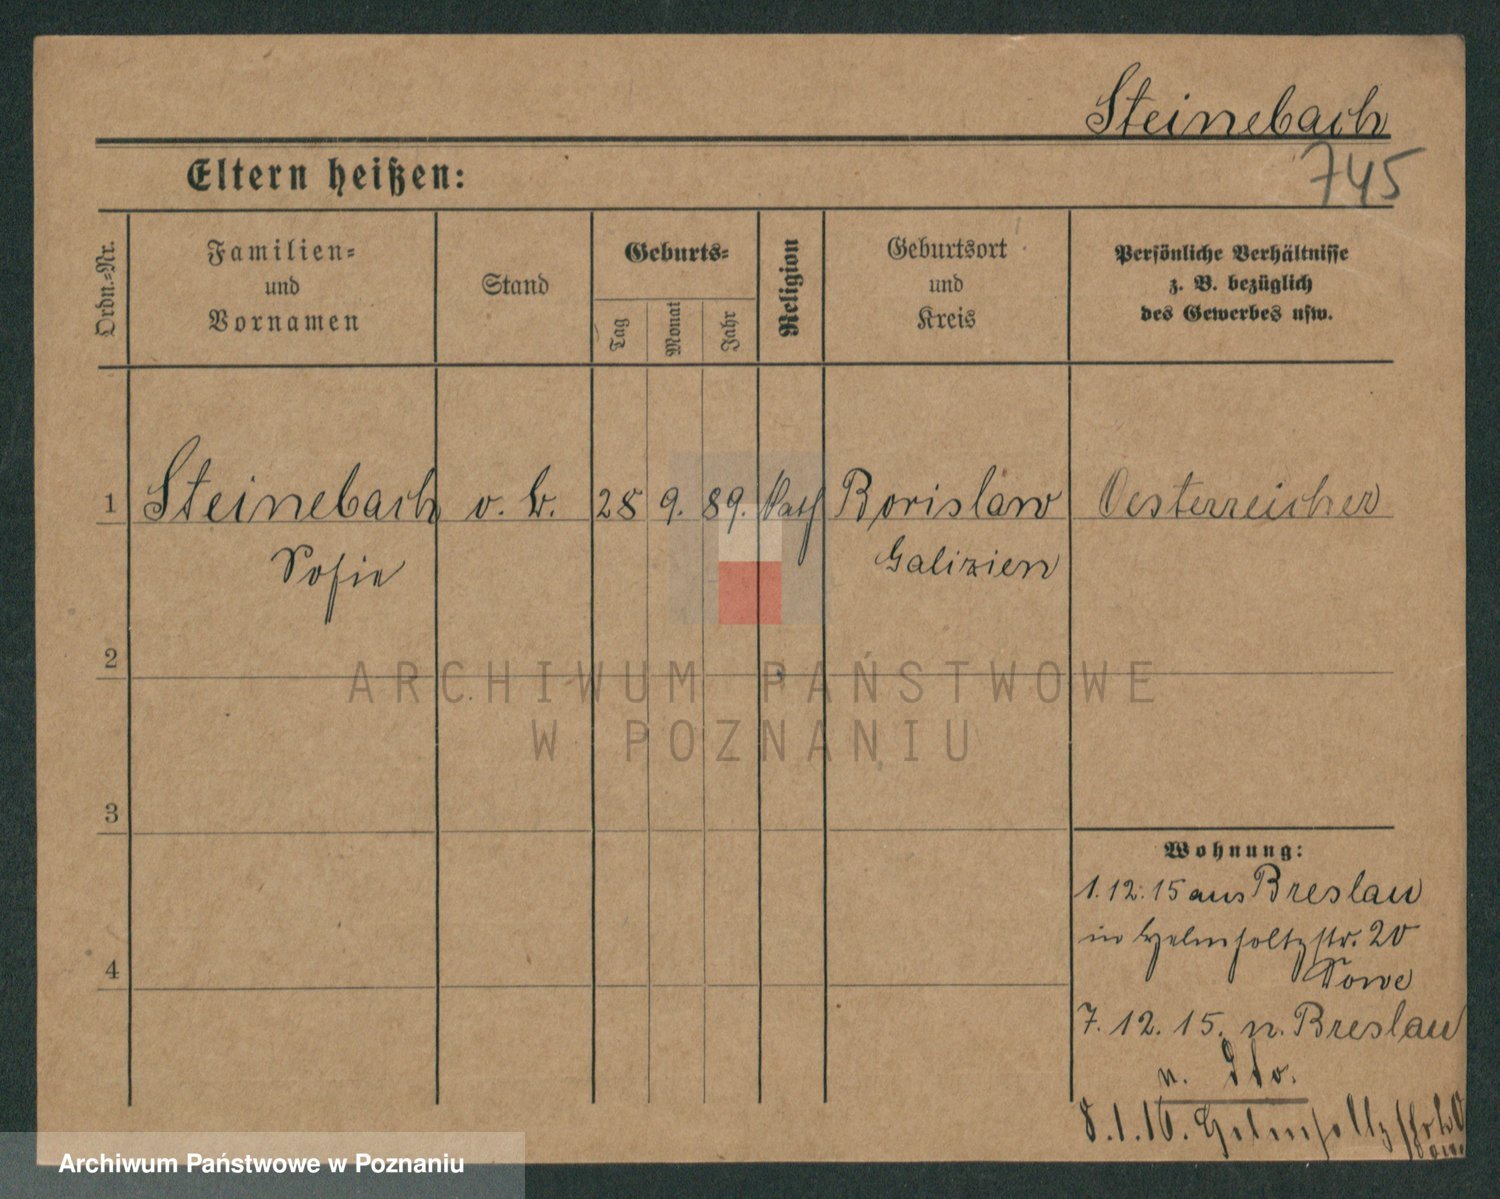 Steinebach
745
Eltern heißen:
Ordn.-Nr.
Familien-
und
Vornamen
Stand
Geburts-
Tag
Monat
Jahr
Religion
Geburtsort
und
Kreis
Persönliche Verhältnisse
z. B. bezüglich
des Gewerbes usw.
1 Steinebach o. B. 28 9. 89. kath Borislaw Oesterreicher
Sofie Galizien
2
ARCHIWUM PAŃSTWOWE
W POZNANIU
3
Wohnung:
1.12.15 aus Breslau
in Helmholtzstr. 20
4
7.12.15. n. Breslau
n. dto.
8.1.16. Helmholtzstr.
Archiwum Państwowe w Poznaniu